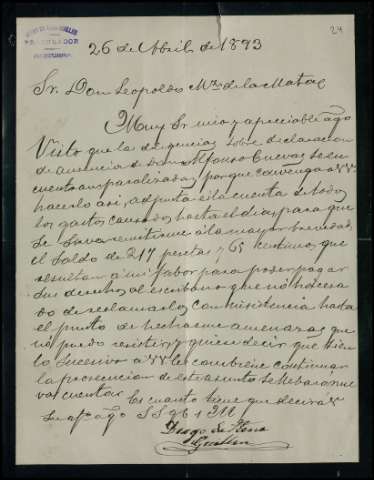 24
PROCURADOR
26 de Abril de 1893
Sr. Don Leopoldo Mz. de la Mata
Muy Sr mio y apreciable ago
Visto que la deligencias sobre declaracion
de ausencia de Don Alfonso Cuevas se en
cuentran paralizadas, porque convenga a VV
hacerlo asi, adjunta la cuenta de todos
los gastos causados hasta el dia, para que
se sirva remitirme a la mayor brevedad
el saldo de 217 pesetas y 65 centimos, que
resultan a mi favor para poder pagar
sus derechos al escribano que no hace
de reclamarlos con insistencia hasta
el punto de hacharme amenazas que
no puedo resistir, y quiere decir que si en
lo sucesivo a VV les combiene continuar
la prosecucion de este asunto se llebara nue
va cuenta. Es cuanto tiene que decir a V
Su afmo ago S S q b s M
Diego de Mena
Guillen